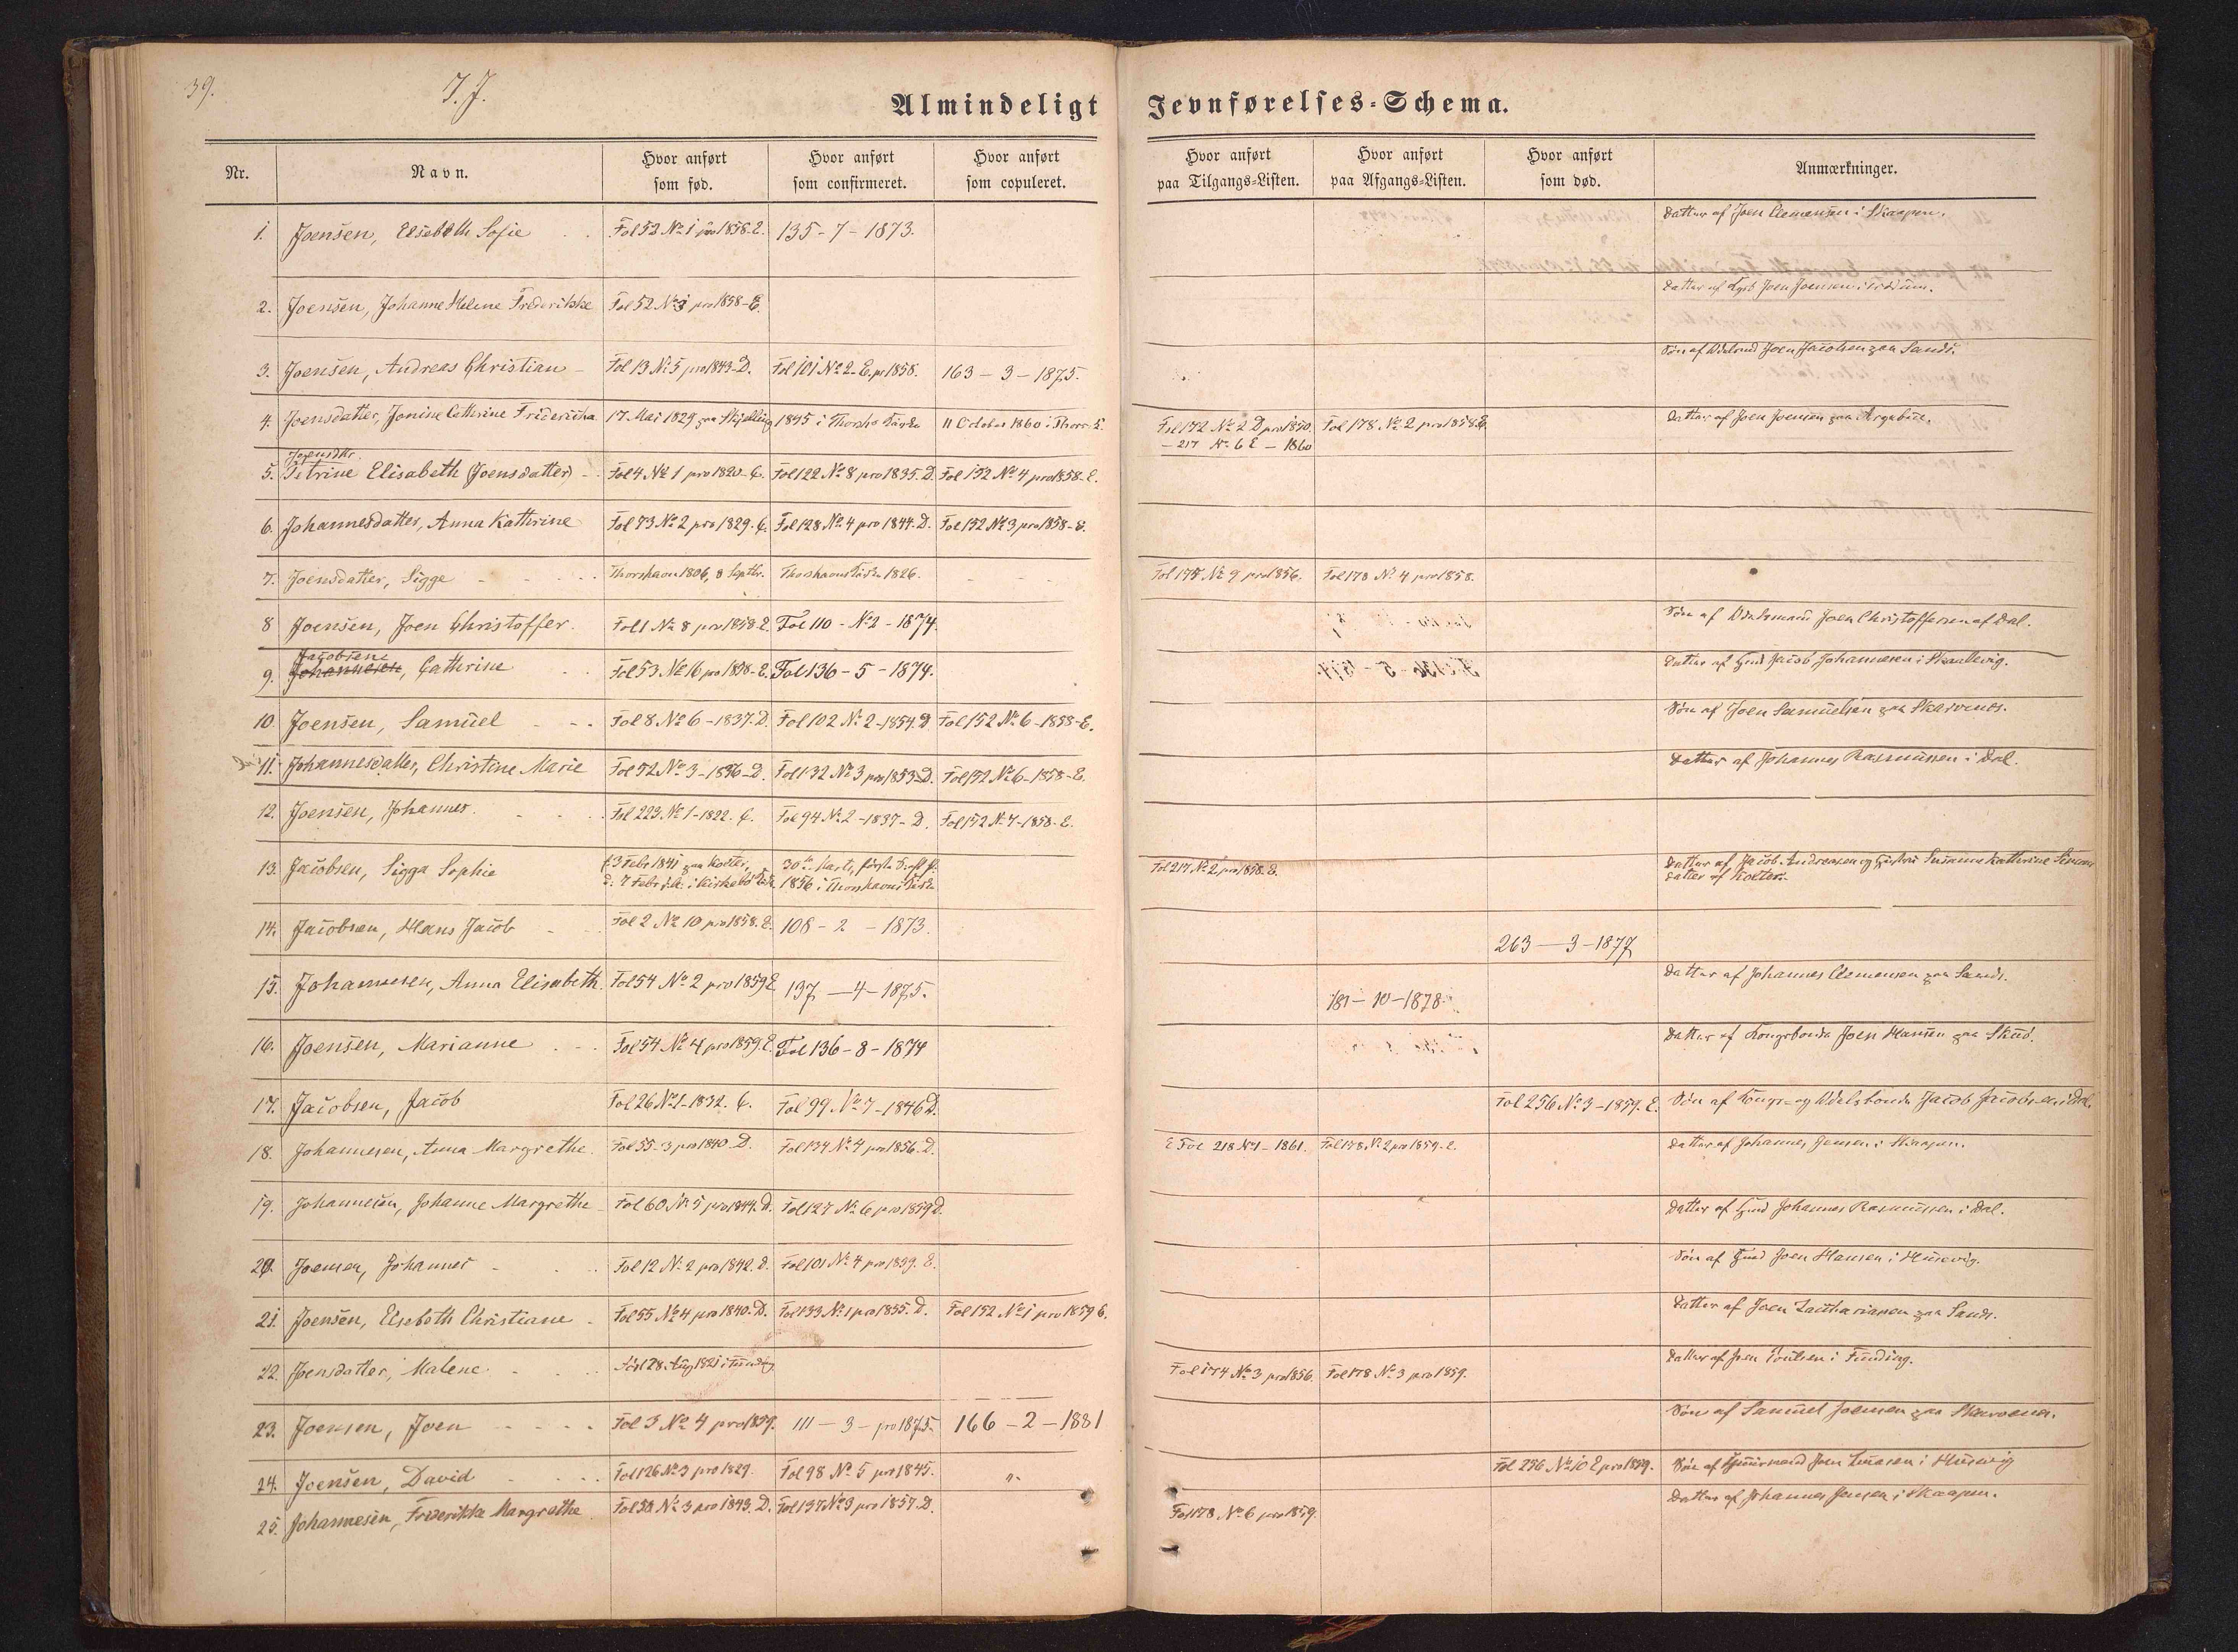 39.
I. J.
Almindeligt Jevnførelses-Schema.
Nr. Navn. Hvor anført som fød. Hvor anført som confirmeret. Hvor anført som copuleret. Hvor anført paa Tilgangs-Listen. Hvor anført paa Afgangs-Listen. Hvor anført som død. Anmærkninger.
1. Joensen, Elsebeth Sofie Fol 52 No 1 pro 1858. E. 135-7-1873. Datter af Joen Clemensen i Skaapen.
2. Joensen, Johanne Helene Frederikke Fol 52 No 3 pro 1858-E. Datter af Joen Joensen i
3. Joensen, Andreas Christian Fol 13 No 5 pro 1843-D. Fol 101 No 2-E. pr 1858. 163-3-1875. Søn af Joen Jacobsen paa Sand.
4. Joensdatter, Jonine Cathrine Fridericha 17. Mai 1829 paa 1845 i Thorsh. Kirke 11 October 1860 i Thorsh. Fol 172 No 2 D pro 1850. Fol 178 No 2 pro 1858. E. Datter af Joen Joensen paa Argeboe.
- 217 No 6 E - 1860
Joensdtr.
5. Petrine Elisabeth (Joensdatter) Fol 4 No 1 pro 1820-C. Fol 122 No 8 pro 1835. D. Fol 152 No 4 pro 1858-E.
6. Johannesdatter, Anna Kathrine Fol 73 No 2 pro 1829. C. Fol 128 No 4 pro 1844. D. Fol 152 No 3 pro 1858-E.
7. Joensdatter, Sigge Thorshavn 1806, 8 Septbr. Thorshavns Kirke 1826. Fol 175 No 9 pro 1856. Fol 178 No 4 pro 1858.
8 Joensen, Joen Christoffer. Fol 1 No 8 pro 1858-E. Fol 110 - No 2 - 1874. Søn af Odelsmand Joen Christoffersen af Dal.
Jacobsen
9. Johannesen, Cathrine Fol 53. No 16 pro 1858-E. Fol 136-5-1874. Datter af Jacob Johannesen i Skaallevig.
10. Joensen, Samuel Fol 8 No 6-1837. D. Fol 102 No 2-1854. D Fol 152 No 6-1858-E. Søn af Joen Samuelsen paa Skarvenes.
11. Johannesdatter, Christine Marie Fol 52 No 3-1836-D. Fol 132 No 3 pro 1853-D. Fol 152 No 6-1858-E. Datter af Johannes Rasmussen i Dal.
12. Joensen, Johannes. Fol 223 No 1-1822. C. Fol 94 No 2-1837-D. Fol 152 No 7-1858-E.
13. Jacobsen, Sigga Sophie f. 3 Febr 1841 paa Kolter, 30te Marts, første Fol 217 No 2 pro 1858. E. Datter af Jacob Andreasen og Hustru Susanne Kathrine Simons
d. 7 Febr. i Kirkebø 1856 i Thorshavns Kirke datter af Kolter.
14. Jacobsen, Hans Jacob Fol 2 No 10 pro 1858. E. 108-2-1873. 263-3-1877
15. Johannesen, Anna Elisabeth Fol 54 No 2 pro 1859 E 137-4-1875. 181-10-1878. Datter af Johannes Clemensen paa Sand.
16. Joensen, Marianne Fol 54 No 4 pro 1859. E. Fol 136-8-1874 Datter af Kongsbonde Joen Hansen paa Skuø.
17. Jacobsen, Jacob Fol 26 No 1-1832. C. Fol 99 No 7-1846 D. Fol 256 No 3-1859. E. Søn af Konge- og Odelsbonde Jacob Jacobsen i Dal.
18. Johannesen, Anna Margrethe Fol 55-3 pro 1840-D. Fol 134 No 4 pro 1856. D. E Fol 218 No 1-1861. Fol 178. No 2 pro 1859-E. Datter af Johannes Jensen i Skaapen.
19. Johannesen, Johanne Margrethe Fol 60 No 5 pro 1844. D. Fol 127 No 6 pro 1859 D. Datter af Johannes Rasmussen i Dal.
20. Joensen, Johannes Fol 12 No 2 pro 1842. D. Fol 101 No 4 pro 1859. E. Søn af Joen Hansen i Husevig.
21. Joensen, Elsebeth Christiane Fol 55 No 4 pro 1840. D. Fol 133 No 1 pro 1855. D. Fol 152 No 1 pro 1859 E. Datter af Joen Zachariasen paa Sand.
22. Joensdatter, Malene Født 28. Aug 1821 i Funding Fol 174 No 3 pro 1856. Fol 178 No 3 pro 1859. Datter af Joen Poulsen i Funding.
23. Joensen, Joen Fol 3 No 4 pro 1859. 111-3-pro 1875. 166-2-1881 Søn af Samuel Joensen paa Skarvenes.
24. Joensen, David Fol 126 No 3 pro 1829. Fol 98 No 5 pro 1845. ". Fol 256 No 10 E pro 1859. Søn af Huusmand Joen i Husevig
25. Johannesen, Frederikke Margrethe Fol 58 No 3 pro 1843. D. Fol 137 No 3 pro 1857. D. Fol 178 No 6 pro 1859. Datter af Johannes Jensen i Skaapen.